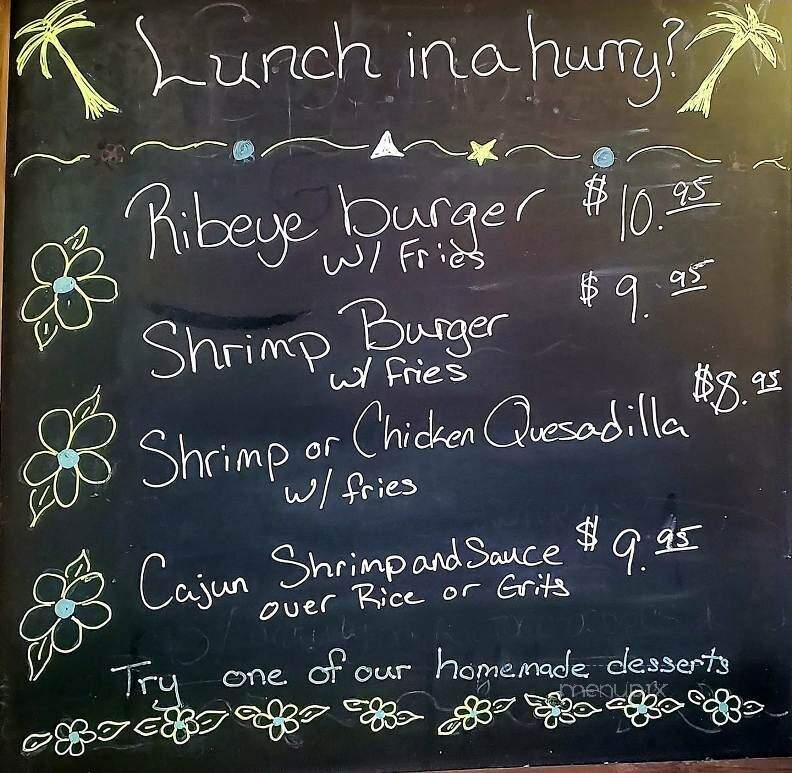 Lunch in a hurry?
Ribeye burger $10.95
w/ Fries
Shrimp Burger $9.95
w/ fries
Shrimp or Chicken Quesadilla $8.95
w/ fries
Cajun Shrimp and Sauce $9.95
over Rice or Grits
Try one of our homemade desserts
menupix